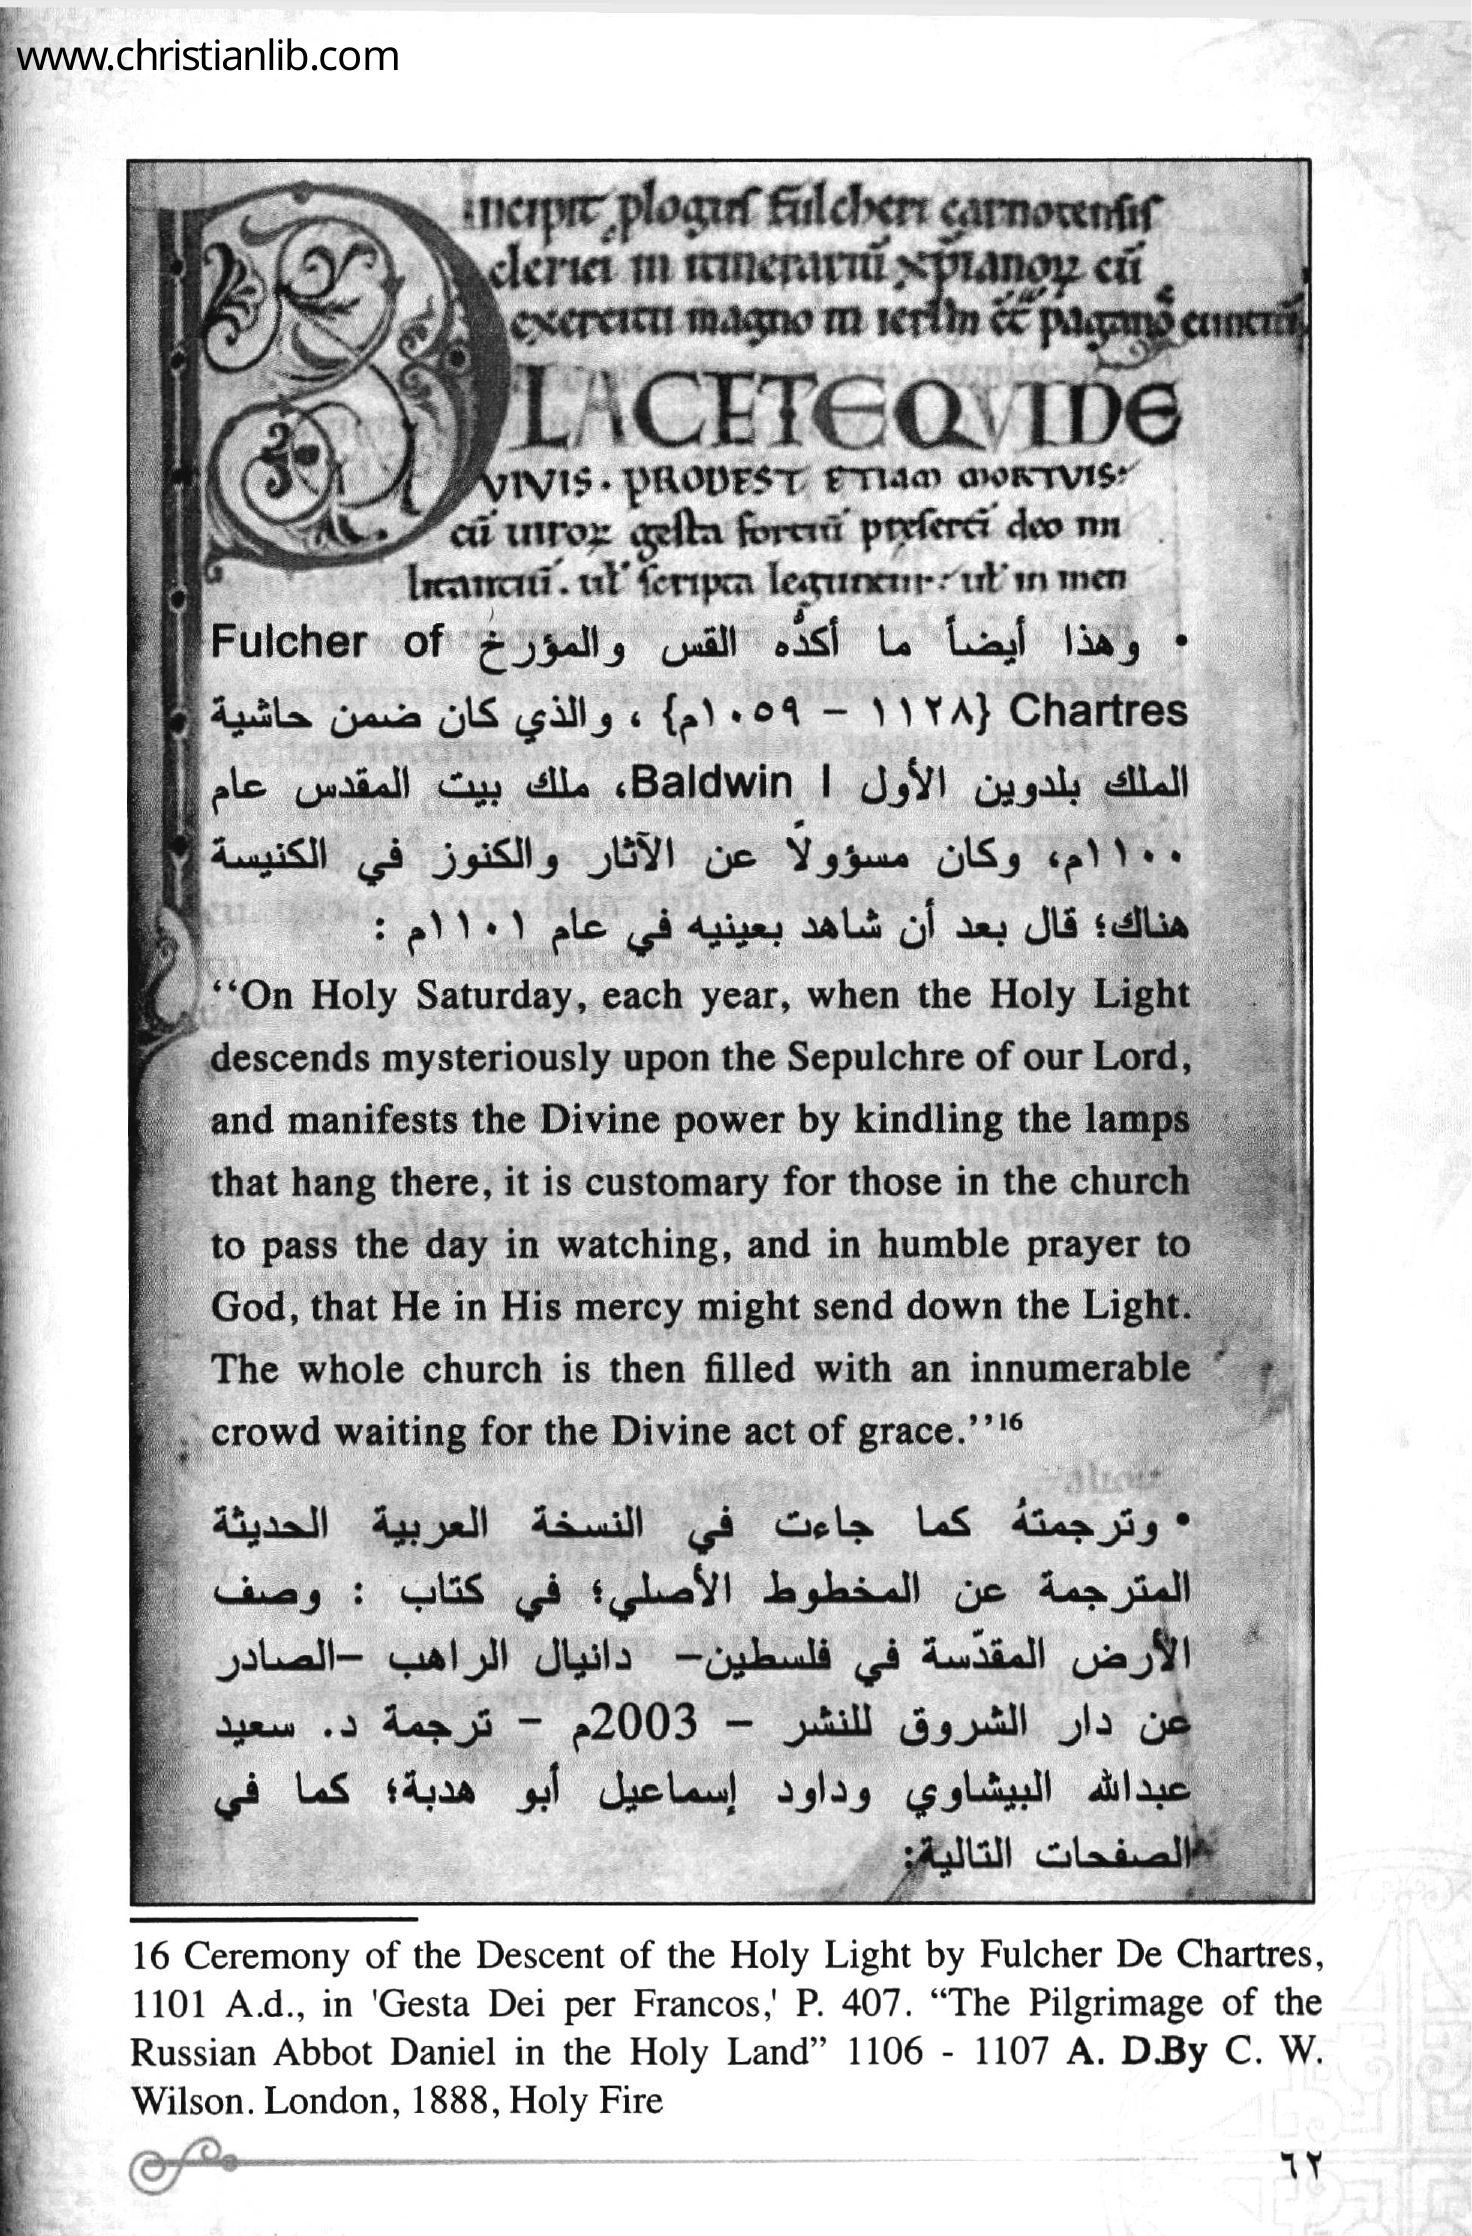 www.christianlib.com
incipit plogus fulcheri carnotensis
clerici in itinerariū xp̄ianoꝝ cū
exercitu magno in ierlm̄
PLACET EQVIDE
VIVIS. PRODEST ETIAM MORTVIS:
cū uiroꝝ gesta fortiū deo mi
litantiū. ul' scripta leguntur: ul' in men
• وهذا أيضاً ما أكدُّه القس والمؤرخ Fulcher of
Chartres {١١٢٨ – ١٠٥٩م} ، والذي كان ضمن حاشية
الملك بلدوين الأول Baldwin I، ملك بيت المقدس عام
١١٠٠م، وكان مسؤولاً عن الآثار والكنوز في الكنيسة
هناك؛ قال بعد أن شاهد بعينيه في عام ١١٠١م :
‘‘On Holy Saturday, each year, when the Holy Light
descends mysteriously upon the Sepulchre of our Lord,
and manifests the Divine power by kindling the lamps
that hang there, it is customary for those in the church
to pass the day in watching, and in humble prayer to
God, that He in His mercy might send down the Light.
The whole church is then filled with an innumerable
crowd waiting for the Divine act of grace.’’16
• وترجمتهُ كما جاءت في النسخة العربية الحديثة
المترجمة عن المخطوط الأصلي؛ في كتاب : وصف
الأرض المقدّسة في فلسطين– دانيال الراهب –الصادر
عن دار الشروق للنشر – 2003م – ترجمة د. سعيد
عبدالله البيشاوي وداود إسماعيل أبو هدبة؛ كما في
الصفحات التالية:
16 Ceremony of the Descent of the Holy Light by Fulcher De Chartres,
1101 A.d., in 'Gesta Dei per Francos,' P. 407. “The Pilgrimage of the
Russian Abbot Daniel in the Holy Land” 1106 - 1107 A. D.By C. W.
Wilson. London, 1888, Holy Fire
٦٢